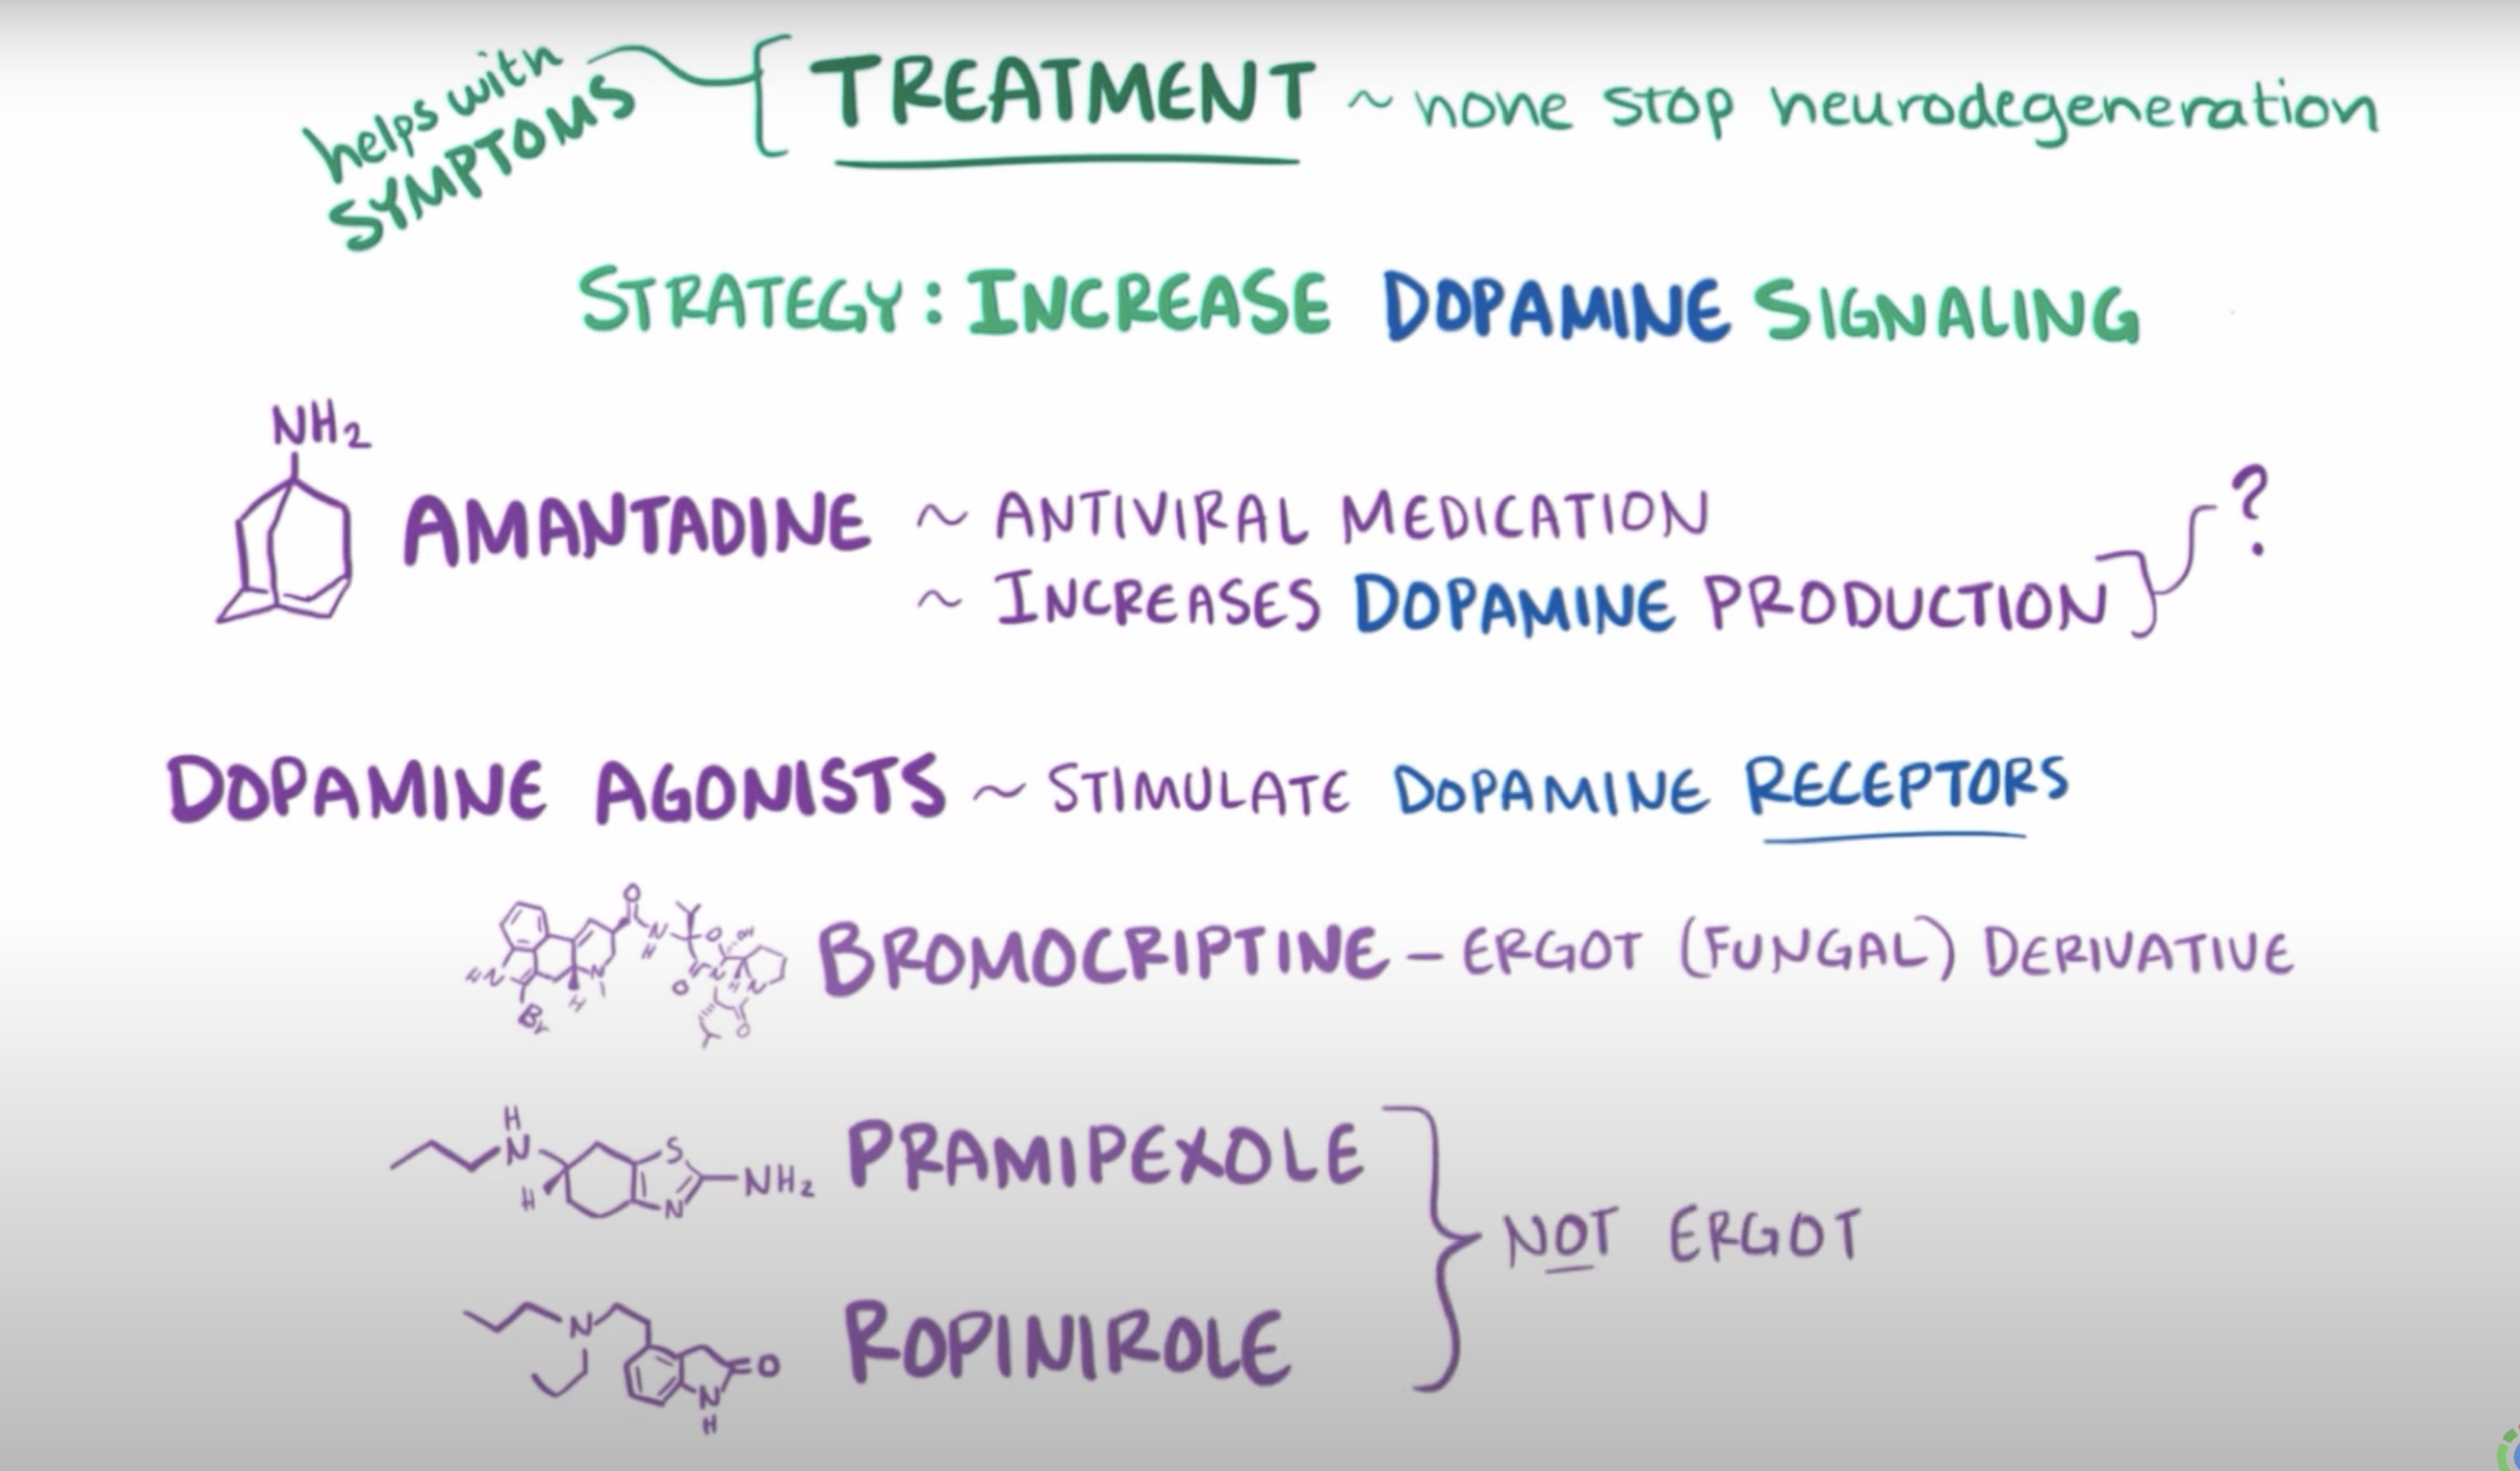 helps with
SYMPTOMS
TREATMENT ~ none stop neurodegeneration
STRATEGY: INCREASE DOPAMINE SIGNALING
NH2
AMANTADINE ~ ANTIVIRAL MEDICATION
~ INCREASES DOPAMINE PRODUCTION
?
DOPAMINE AGONISTS ~ STIMULATE DOPAMINE RECEPTORS
O
N
H
O
OH
H N
N
H
Br
O
N
H
N
O
BROMOCRIPTINE - ERGOT (FUNGAL) DERIVATIVE
H
N
H
S
N
NH2
PRAMIPEXOLE
NOT ERGOT
N
O
N
H
ROPINIROLE